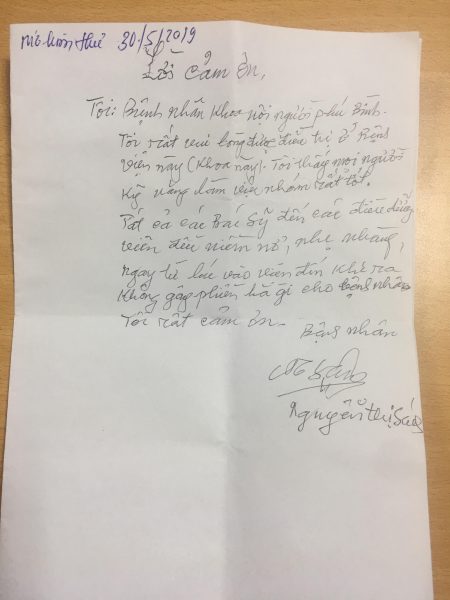 Mở hòm thư 30/5/2019
Lời cảm ơn,
Tôi: Bệnh nhân khoa nội người phú Bình.
Tôi rất vui lòng được điều trị ở Bệnh
viện này (Khoa này). Tôi thấy mọi người
Kỹ năng làm việc nhóm rất tốt.
Tất cả các Bác Sỹ đến các điều dưỡng
viên đều niềm nở, nhẹ nhàng,
ngay từ lúc vào viện đến khi ra
không gây phiền hà gì cho bệnh nhân
Tôi rất cảm ơn.
Bệnh nhân
Nguyễn thị